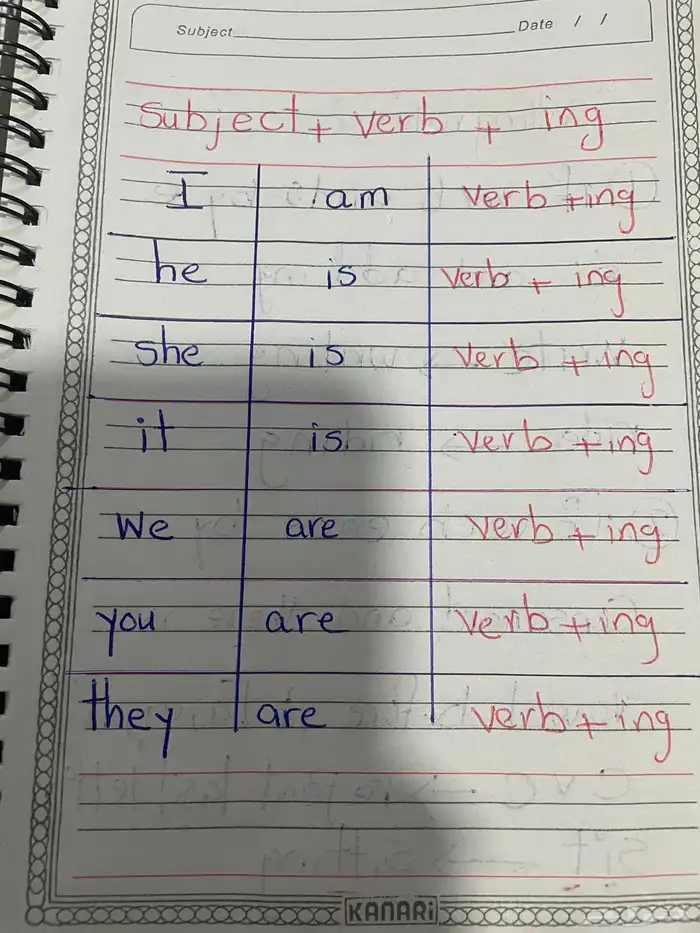 Subject Date / /
Subject + verb + ing
I am verb +ing
he is verb + ing
she is verb + ing
it is. verb + ing
we are verb + ing
you are verb + ing
they are verb + ing
KANARi